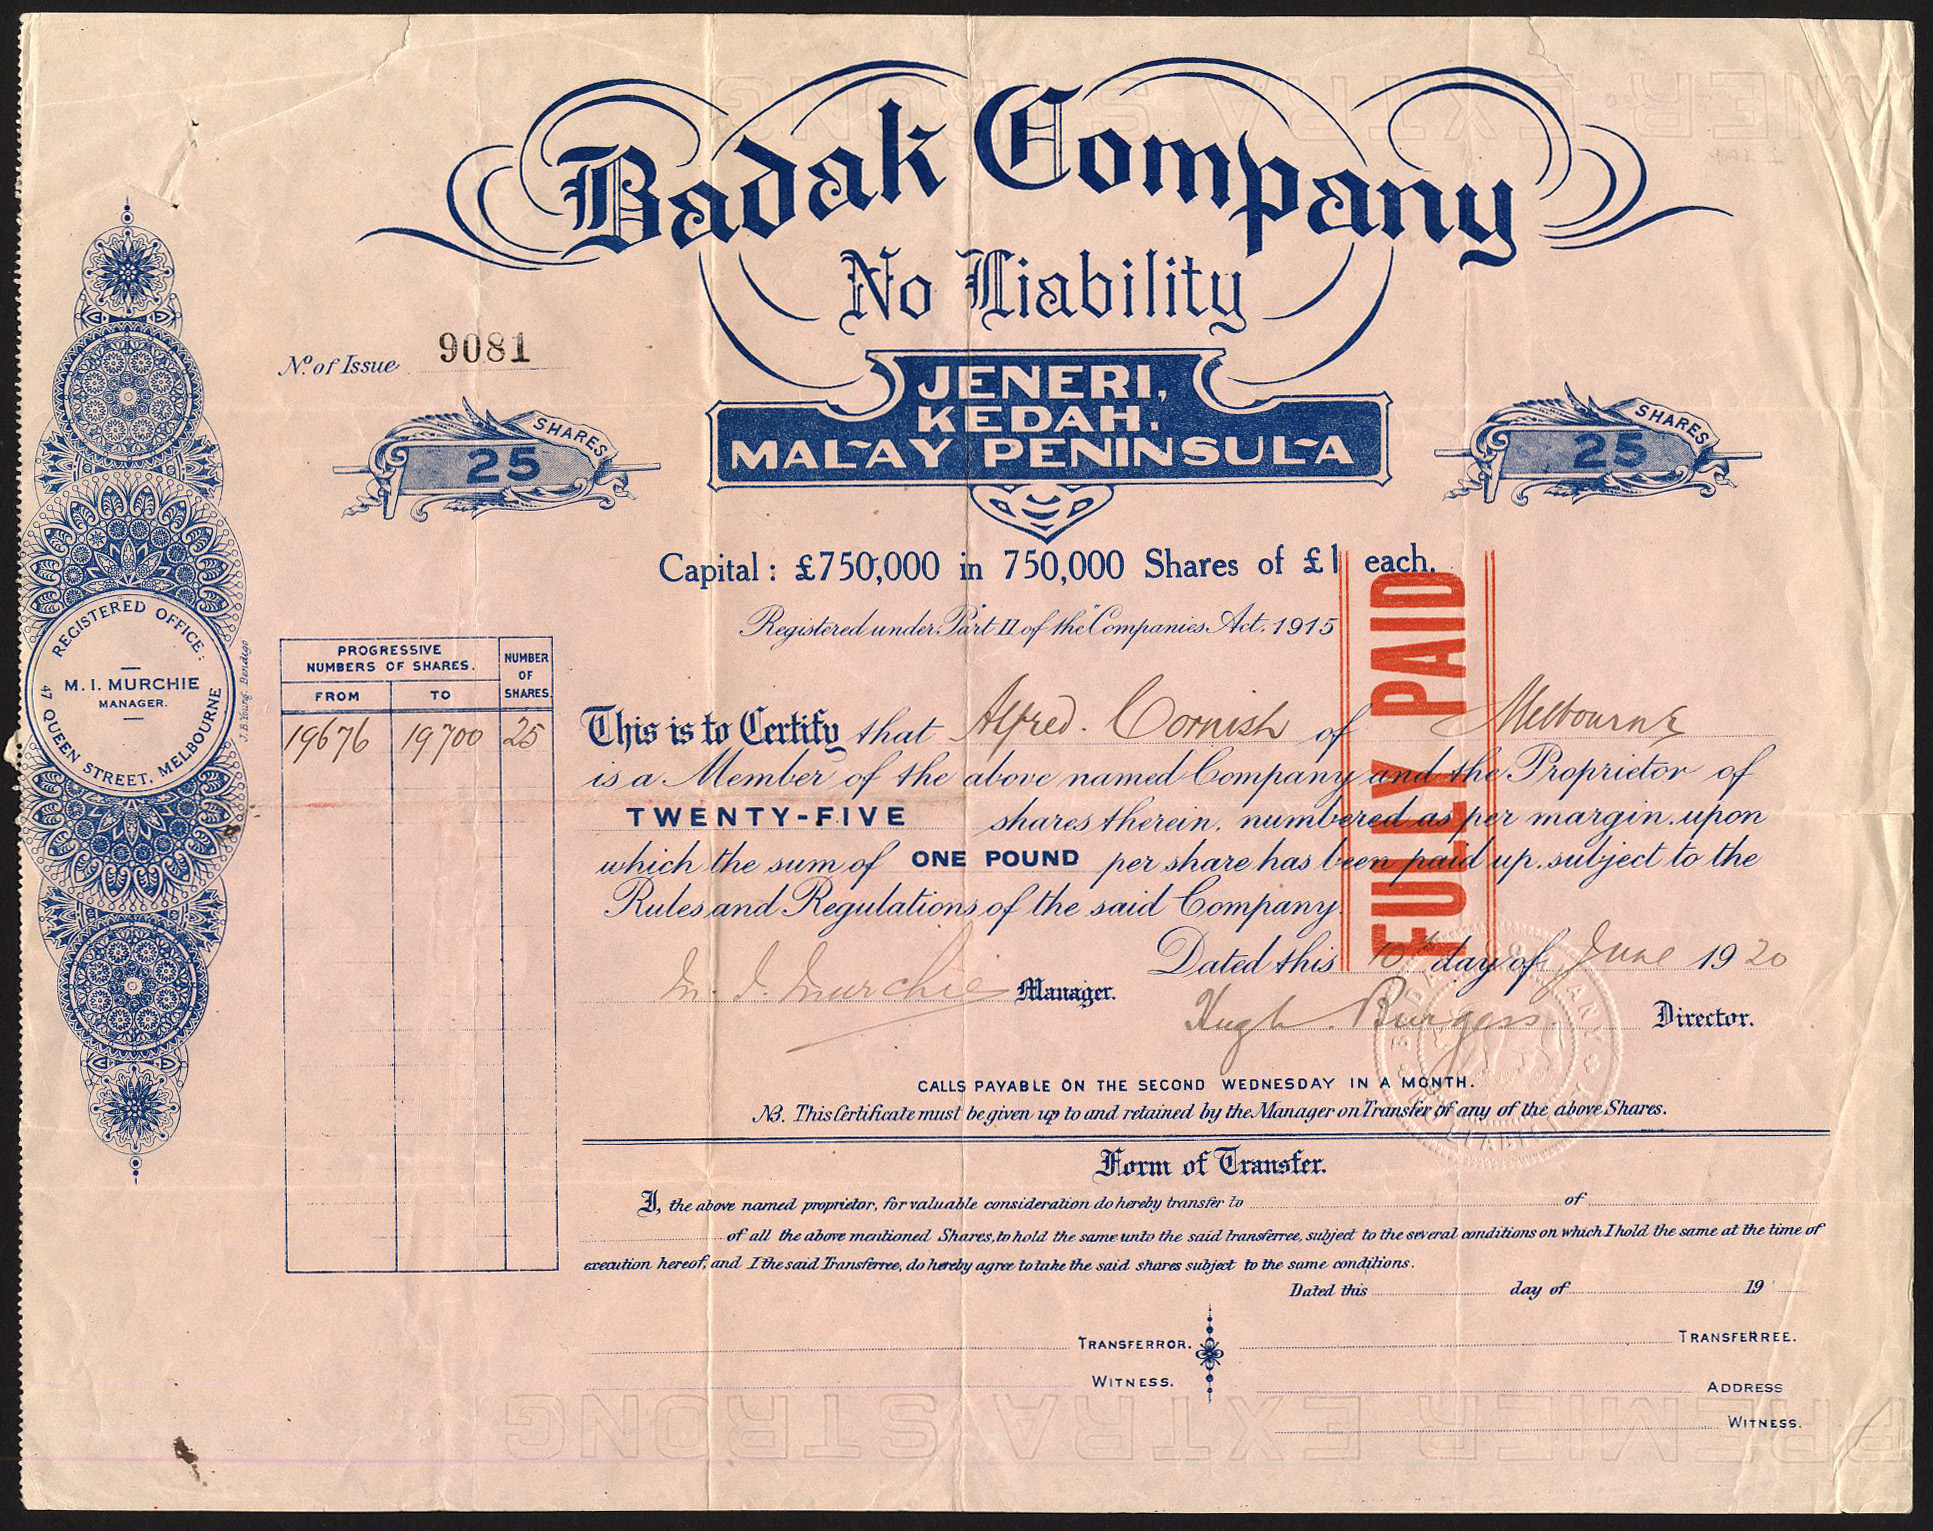 Badak Company
No Liability
JENERI,
KEDAH.
MALAY PENINSULA
No. of Issue 9081
SHARES
25
SHARES
25
Capital: £750,000 in 750,000 Shares of £1 each.
Registered under Part II of the "Companies Act. 1915
FULLY PAID
REGISTERED OFFICE:
M. I. MURCHIE
MANAGER.
47 QUEEN STREET, MELBOURNE
J.B. Young. Bendigo
PROGRESSIVE
NUMBERS OF SHARES.
NUMBER
OF
SHARES.
FROM TO
19676 19700 25
This is to Certify that Alfred. Cornish of Melbourne
is a Member of the above named Company and the Proprietor of
TWENTY-FIVE shares therein, numbered as per margin, upon
which the sum of ONE POUND per share has been paid up, subject to the
Rules and Regulations of the said Company.
Dated this 10th day of June 1920
M. I. Murchie Manager.
Hugh. Burgess. Director.
BADAK COMPANY
NO LIABILITY
CALLS PAYABLE ON THE SECOND WEDNESDAY IN A MONTH.
NB. This Certificate must be given up to and retained by the Manager on Transfer of any of the above Shares.
Form of Transfer.
I, the above named proprietor, for valuable consideration do hereby transfer to of
of all the above mentioned Shares, to hold the same unto the said transferree, subject to the several conditions on which I hold the same at the time of
execution hereof, and I the said Transferree, do hereby agree to take the said shares subject to the same conditions.
Dated this day of 19
TRANSFERROR. TRANSFERREE.
WITNESS. ADDRESS
WITNESS.
PREMIER EXTRA STRONG